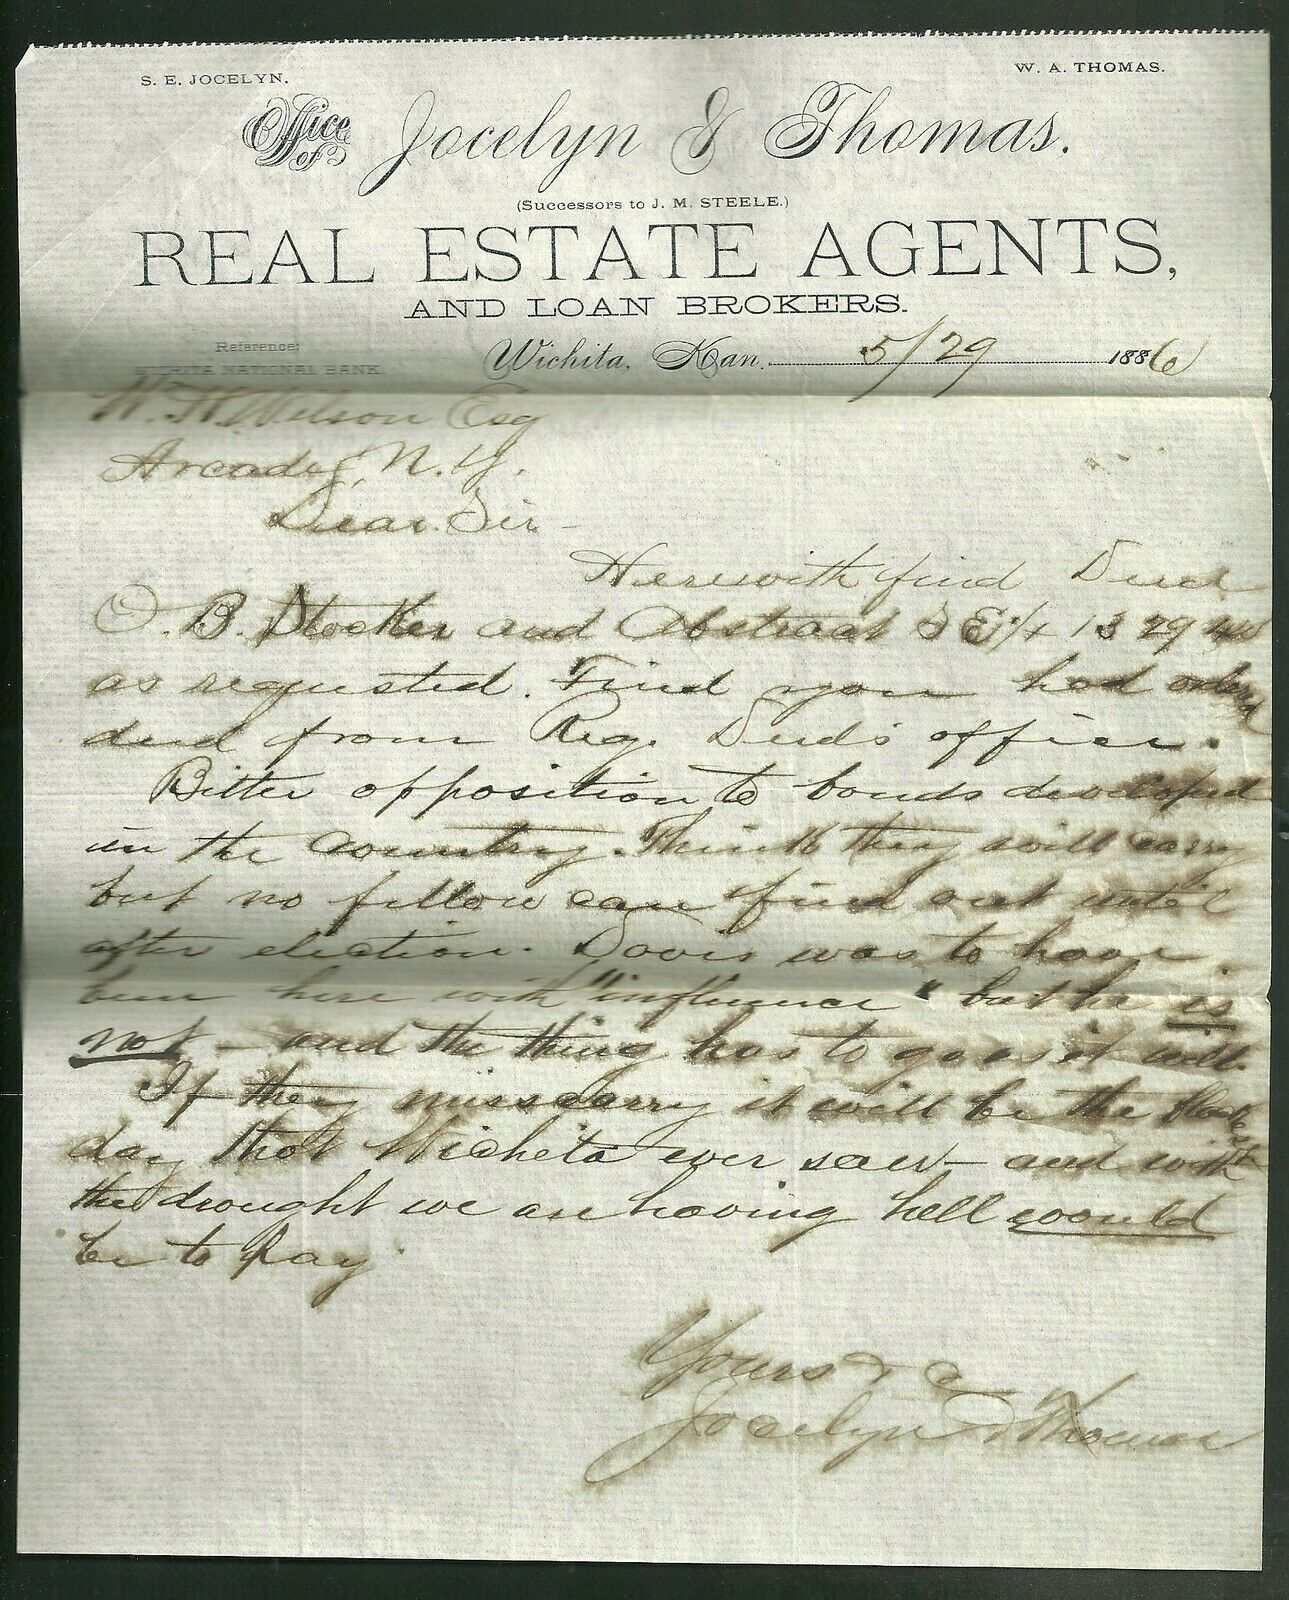 S. E. JOCELYN.
W. A. THOMAS.
Office of Jocelyn & Thomas.
(Successors to J. M. STEELE.)
REAL ESTATE AGENTS,
AND LOAN BROKERS.
Reference:
WICHITA NATIONAL BANK.
Wichita, Kan. 5/29 1886
W. H. Wilson Esq
Arcade, N. Y.
Dear Sir -
Herewith find Deed
O. B. Stocker and Abstract S E 1/4 13 29 4W
as requested. Find you had ordered
deed from Reg. Deed's office.
Bitter opposition to bonds developed
in the country. Think they will carry
but no fellow can find out until
after election. Davis was to have
been here with "influence" but he is
not - and the thing has to go as it will.
If they miscarry it will be the blackest
day that Wichita ever saw - and with
the drought we are having hell would
be to pay.
Yours &c
Jocelyn & Thomas